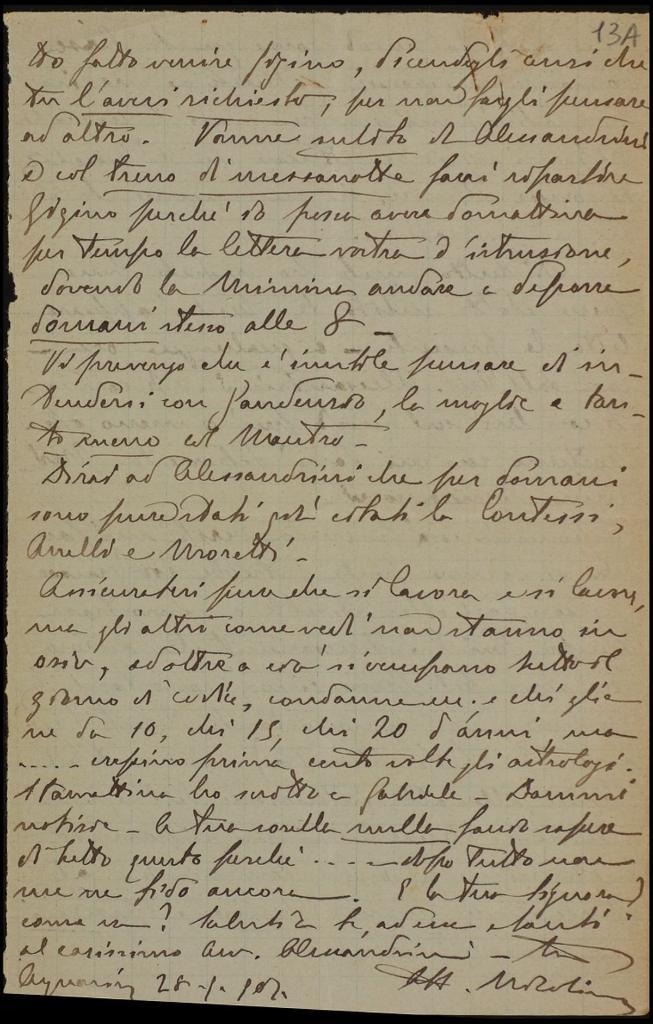 13A
Ho fatto venire Gigino, dicendogli anzi che
tu l'avevi richiesto, per non fargli pensare
ad altro. Vanne subito di Alessandrini
e col treno di mezzanotte farai ripartire
Gigino perché io possa avere domattina
per tempo la lettera vostra d'istruzione,
dovendo la Mimina andare a deporre
domani stesso alle 8 –
Vi prevengo che è inutile pensare di in-
tendersi con , la moglie e tan-
to meno col Mautro –
Dirai ad Alessandrini che per domani
sono pure stati già citati la Contessi,
Anelli e Moretti –
Assicurateri pure che si lavora e si lavora,
ma gli altri come vedi non stanno in
ozio, ed oltre a ciò si occupano tutto il
giorno di , condanne ecc. e chi glie
ne dà 10, chi 15, chi 20 d'anni, ma
..... crepino prima cento volte gli astrologi.
Stamattina ho scritto a Gabriele – Dammi
notizie – la tua sorella nulla fando sapere
di tutto questo perché .... dopo tutto non
me ne fido ancora. E la tua Signora
come va? Saluti a te, ad essa e tanti
al carissimo avv. Alessandrini – tuo
28-1-907.